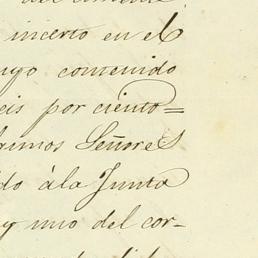 incerto en el
uyo contenido
eis por ciento=
gunos Señores
do àla Junta
y uno del cor-